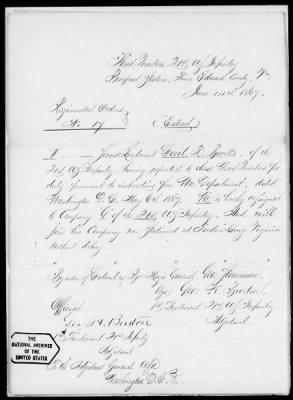 Head Quarters 21st U.S. Infantry
Prince Edward County, Va.
June 14th 1867.
Regimental Orders
No 17
(Extract)
II Second Lieutenant Cecil R. of the
21st U.S. Infantry, having reported to these Head Quarters for
duty, pursuant to instructions from War Department, dated
Washington D.C. May 1867. He is hereby assigned
to Company G of the 21st U.S. Infantry, and will
join his Company now Stationed at Fredericksburg Virginia
without delay.
By order of Bvt. Major General Geo.
Geo. H. Burton
2d Lieutenant 21st U.S. Infantry
Adjutant
Official
Geo. H. Burton
2d Lieutenant 21st Infantry
Adjutant
To the Adjutant General's Office
Washington D.C.
THE
NATIONAL ARCHIVES
OF THE
UNITED STATES